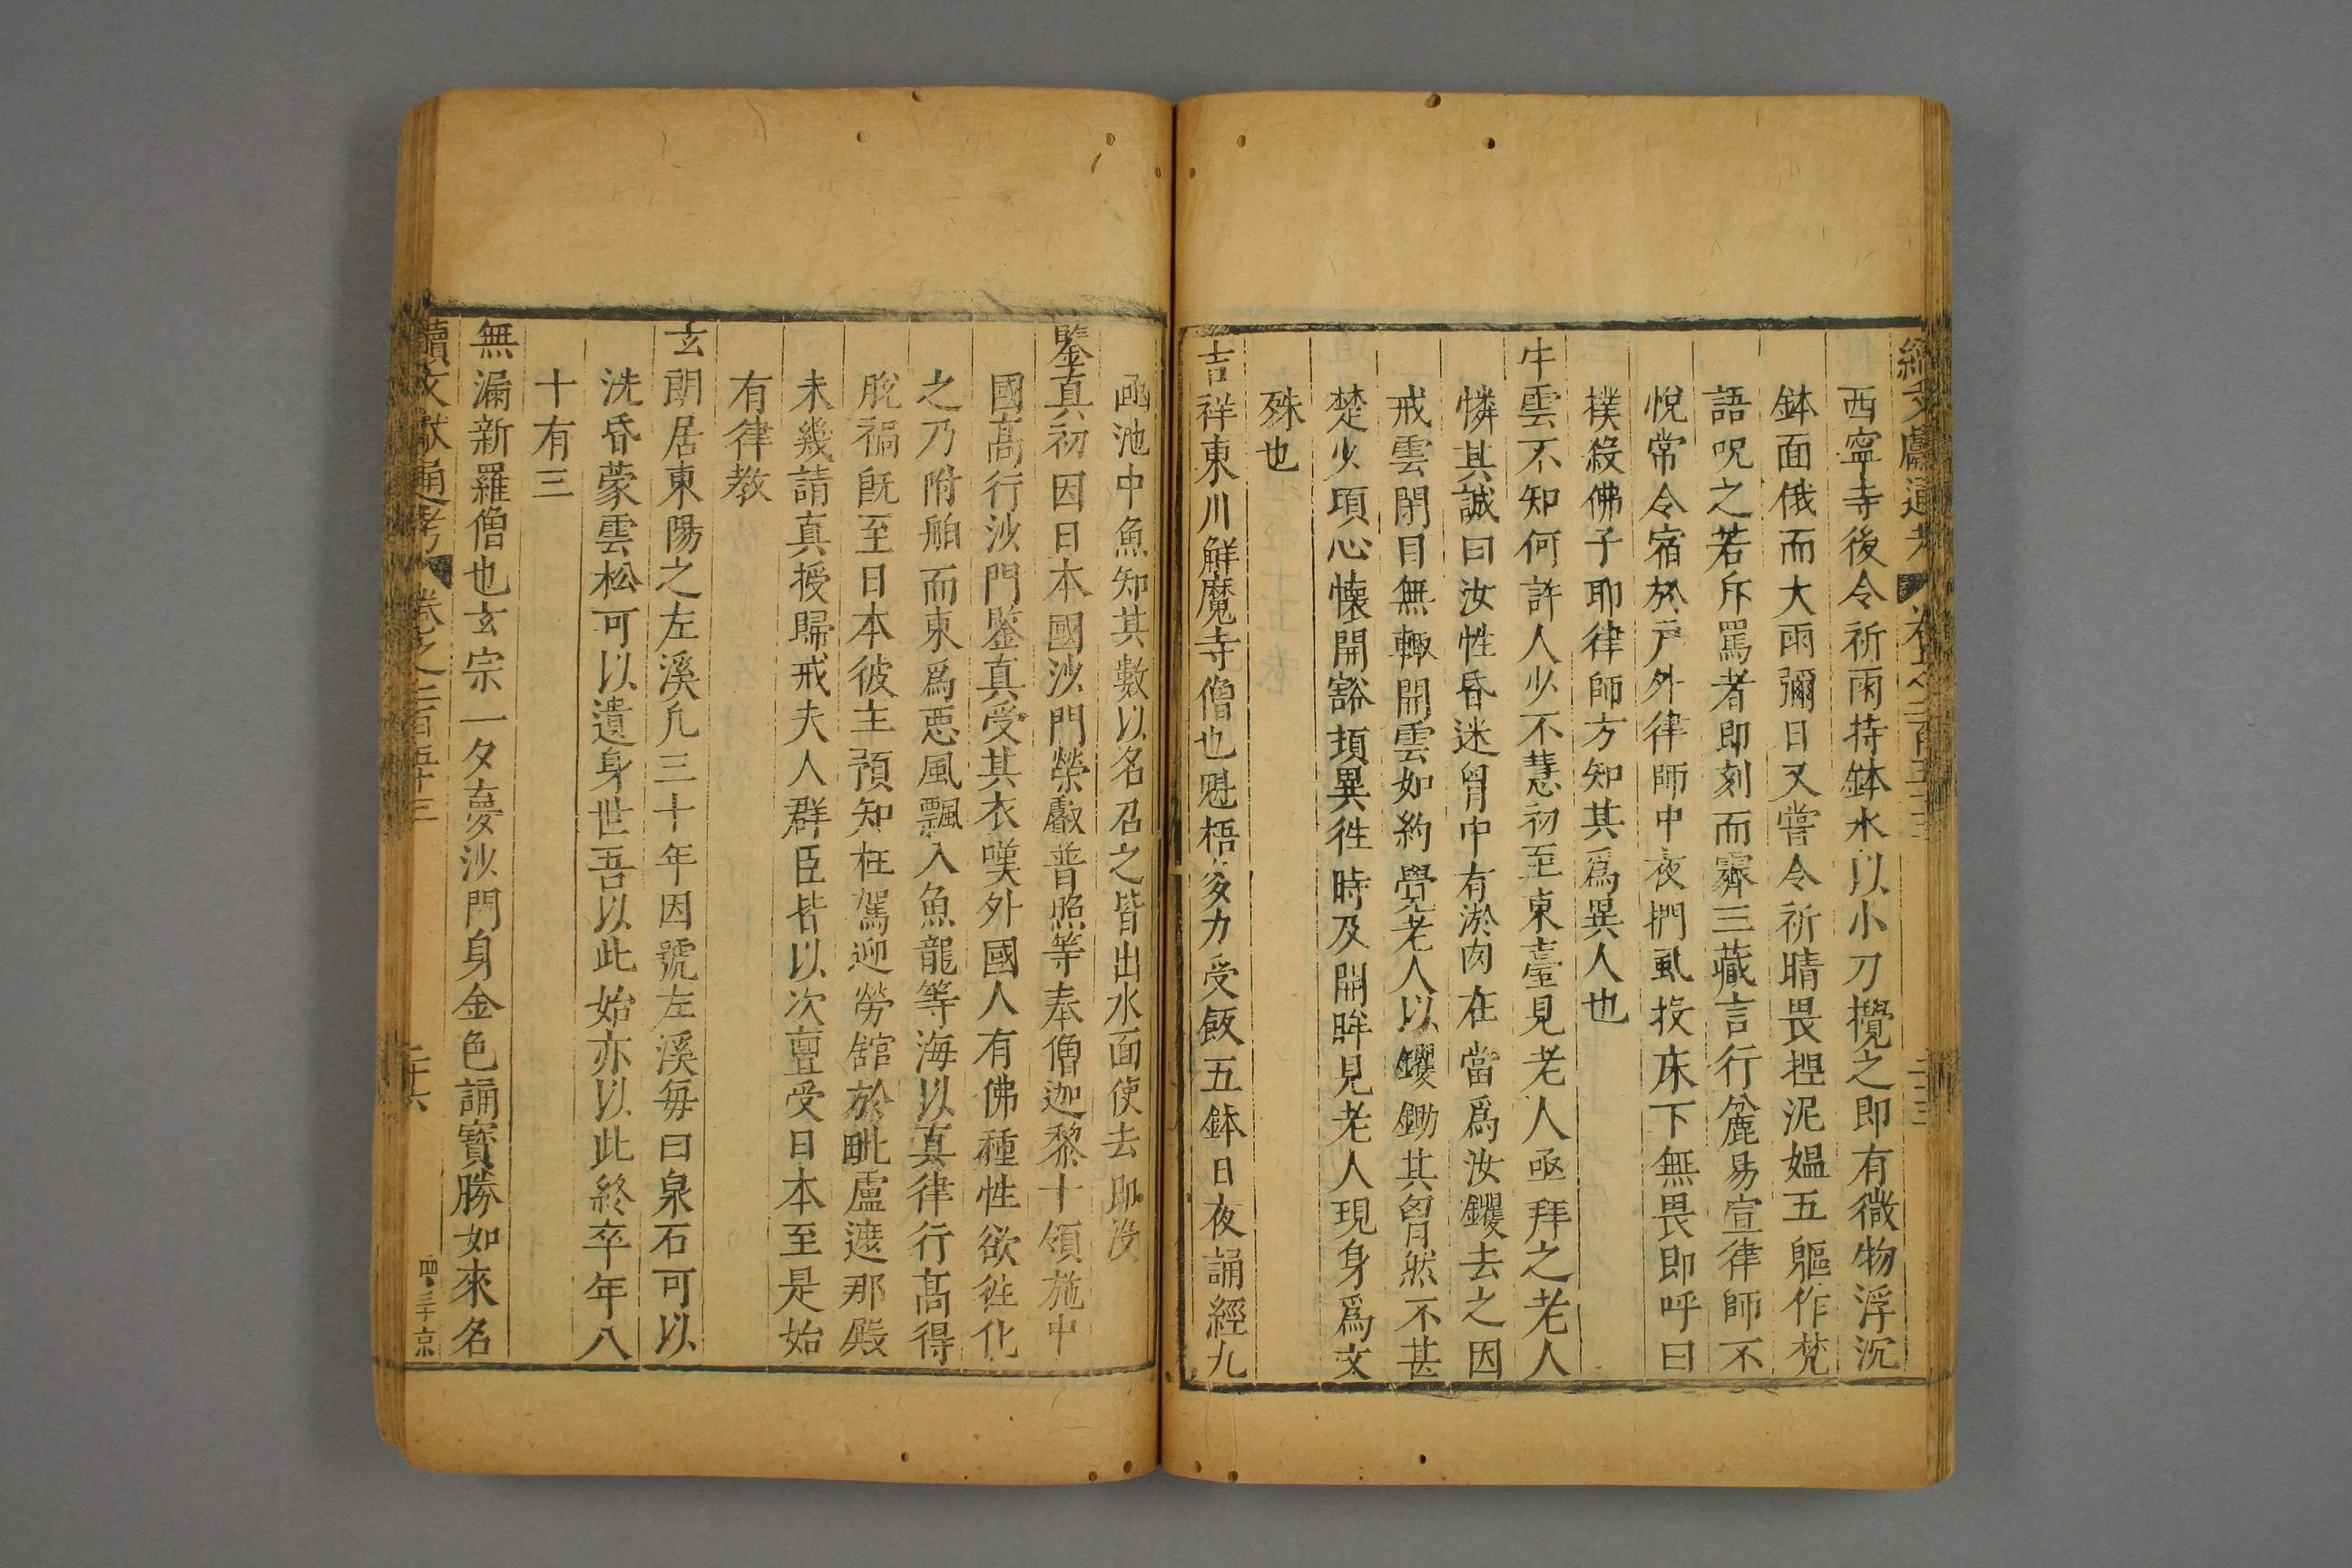 續文獻通考 卷之二百五十三 二十三
西寧寺後令祈雨持鉢水以小刀攪之即有微物浮沉
鉢面俄而大雨彌日又嘗令祈晴畏捏泥媼五軀作梵
語呪之若斥罵者即刻而霽三藏言行麄易宣律師不
悅常令宿於戶外律師中夜捫虱投床下無畏即呼曰
撲殺佛子耶律師方知其爲異人也
牛雲不知何許人少不慧初至東臺見老人亟拜之老人
憐其誠曰汝性昏迷胷中有淤肉在當爲汝钁去之因
戒雲閉目無輙開雲如約覺老人以钁鋤其胷然不甚
楚少頃心懷開豁頓異徃時及開眸見老人現身爲文
殊也
吉祥東川觧魔寺僧也魁梧多力受飯五鉢日夜誦經九
函池中魚知其數以名召之皆出水面使去即沒
鑒真初因日本國沙門榮叡普照等奉僧迦黎十領施中
國髙行沙門鑒真受其衣嘆外國人有佛種性欲徃化
之乃附舶而東爲惡風飄入魚龍等海以真律行髙得
脫禍旣至日本彼主預知枉駕迎勞舘於毗盧遮那殿
未幾請真授歸戒夫人群臣皆以次亶受日本至是始
有律教
玄朗居東陽之左溪凢三十年因號左溪毎曰泉石可以
洗昏蒙雲松可以遺身世吾以此始亦以此終卒年八
十有三
無漏新羅僧也玄宗一夕夢沙門身金色誦寶勝如來名
續文獻通考 卷之二百五十三 二十六 四三十京